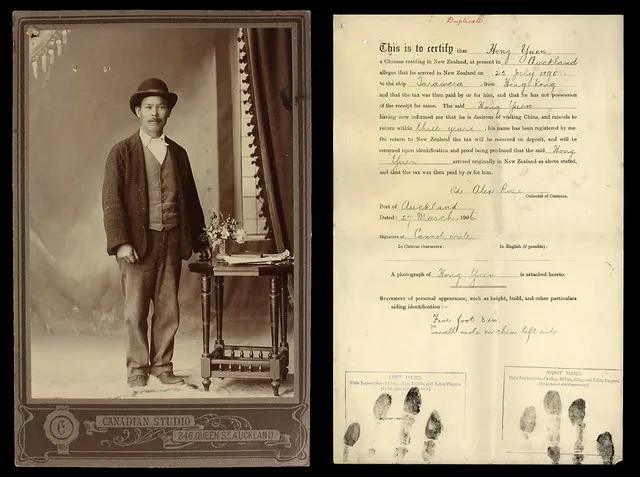 CANADIAN STUDIO
346, QUEEN ST. AUCKLAND.
Duplicate
This is to certify that Hong Yuen
a Chinese residing in New Zealand, at present in Auckland
alleges that he arrived in New Zealand on 25 July 1896
in the ship Tarawera, from Hong Kong
and that the tax was then paid by or for him, and that he has not possession
of the receipt he name. The said Hong Yuen
having now informed me that he is desirous of visiting China, and intends to
return within three years, his name has been registered by me.
On return to New Zealand the tax will be received on deposit, and will be
returned upon identification and proof being produced that the said Hong
Yuen arrived originally in New Zealand as above stated,
and that the tax was then paid by or for him.
Alex Rose
Collector of Customs.
Port of Auckland
Dated: 27 March, 1906
Signature of Cannot write
In Chinese characters: In English (if possible):
A photograph of Hong Yuen is attached hereto.
STATEMENT of personal appearance, such as height, build, and other particulars
aiding identification:—
Five foot 3 in
Small mole on chin left side
LEFT HAND.
Plain Impressions of Index, Middle, Ring, and Little Fingers
RIGHT HAND.
Plain Impressions of Index, Middle, Ring, and Little Fingers